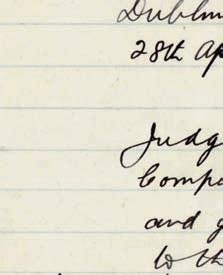 Dublin
28th Ap
Judg
Compa
and g
to th